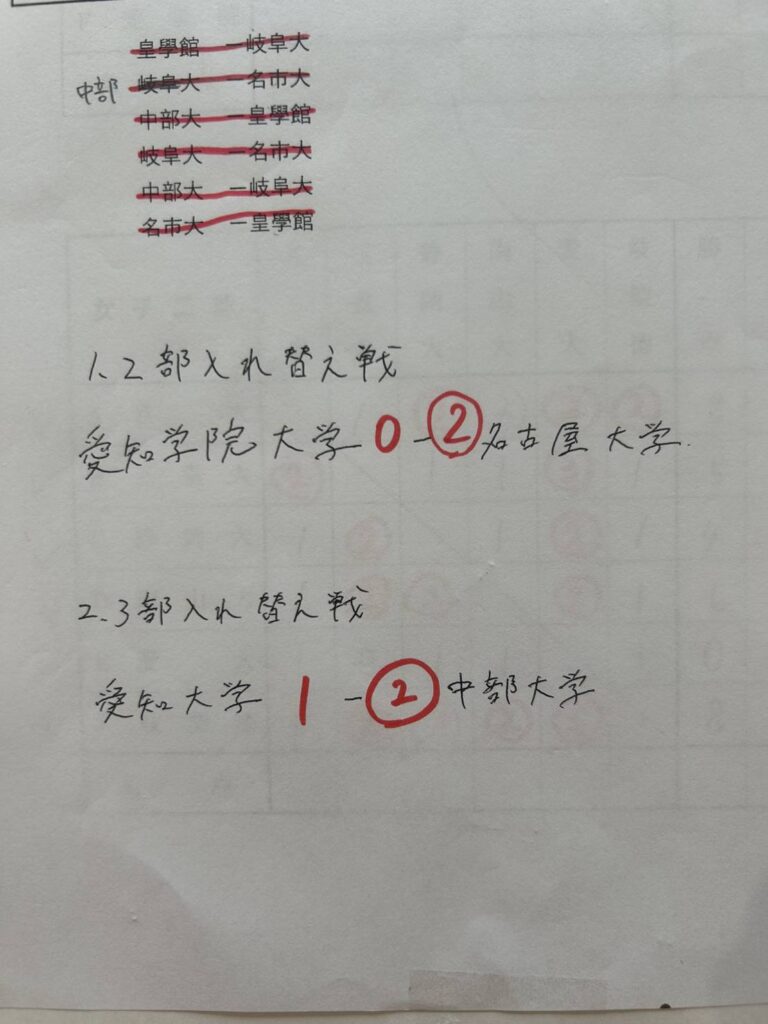 皇學館 ー岐阜大
中部 岐阜大 ー名市大
中部大 ー皇學館
岐阜大 ー名市大
中部大 ー岐阜大
名市大 ー皇學館
1、2部入れ替え戦
愛知学院大学 0 - ② 名古屋大学.
2、3部入れ替え戦
愛知大学 1 - ② 中部大学